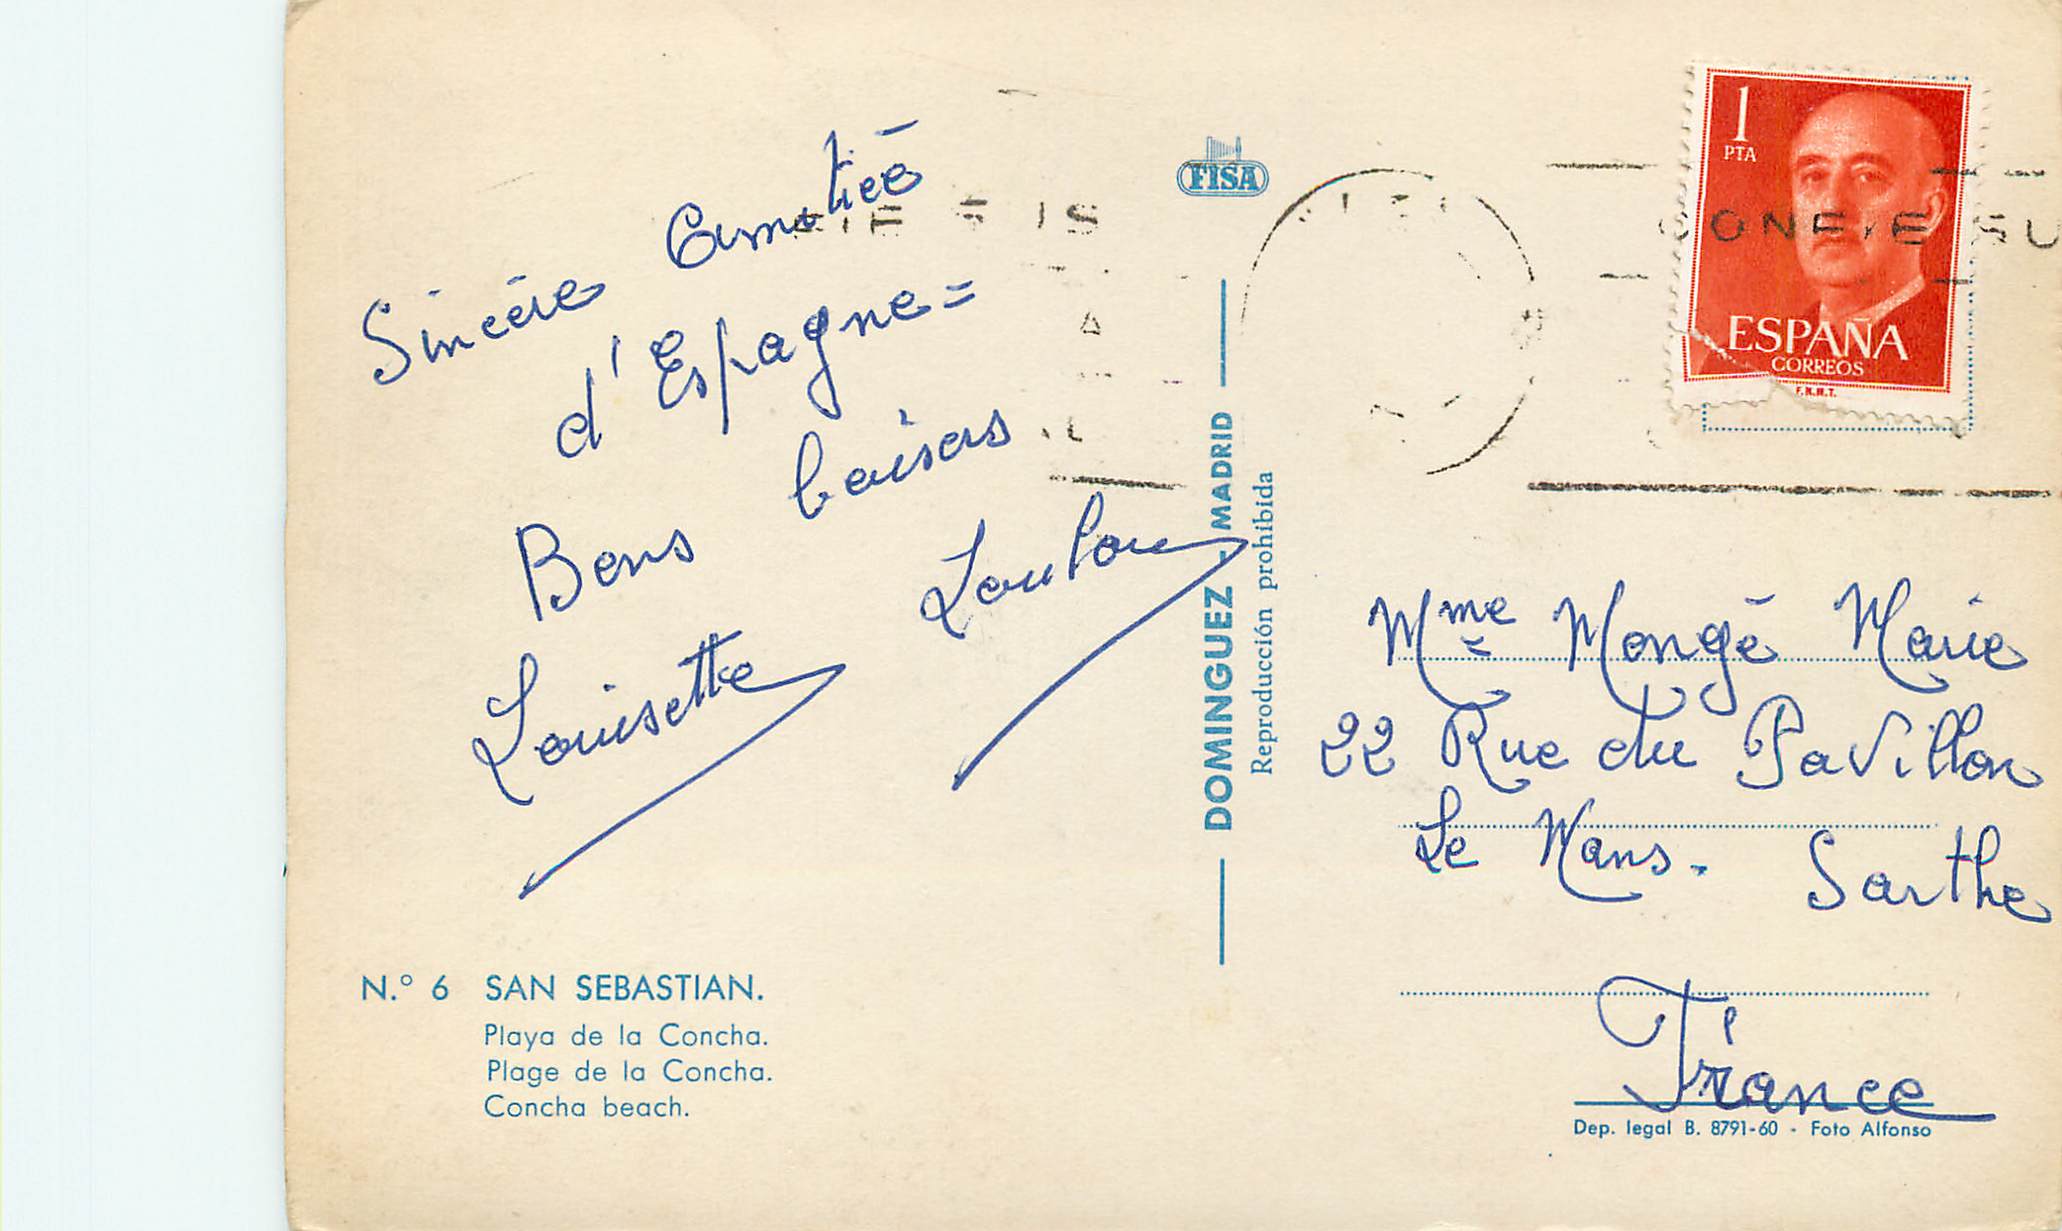 Sincère amitié
d'Espagne =
Bons baisers
Louisette Loulou
N.° 6 SAN SEBASTIAN.
Playa de la Concha.
Plage de la Concha.
Concha beach.
FISA
DOMINGUEZ - MADRID
Reproducción prohibida
1
PTA
ESPAÑA
CORREOS
F.N.M.T.
CONFIE SU
Mme Mongé Marie
22 Rue du Pavillon
Le Mans. Sarthe
France
Dep. legal B. 8791-60 - Foto Alfonso